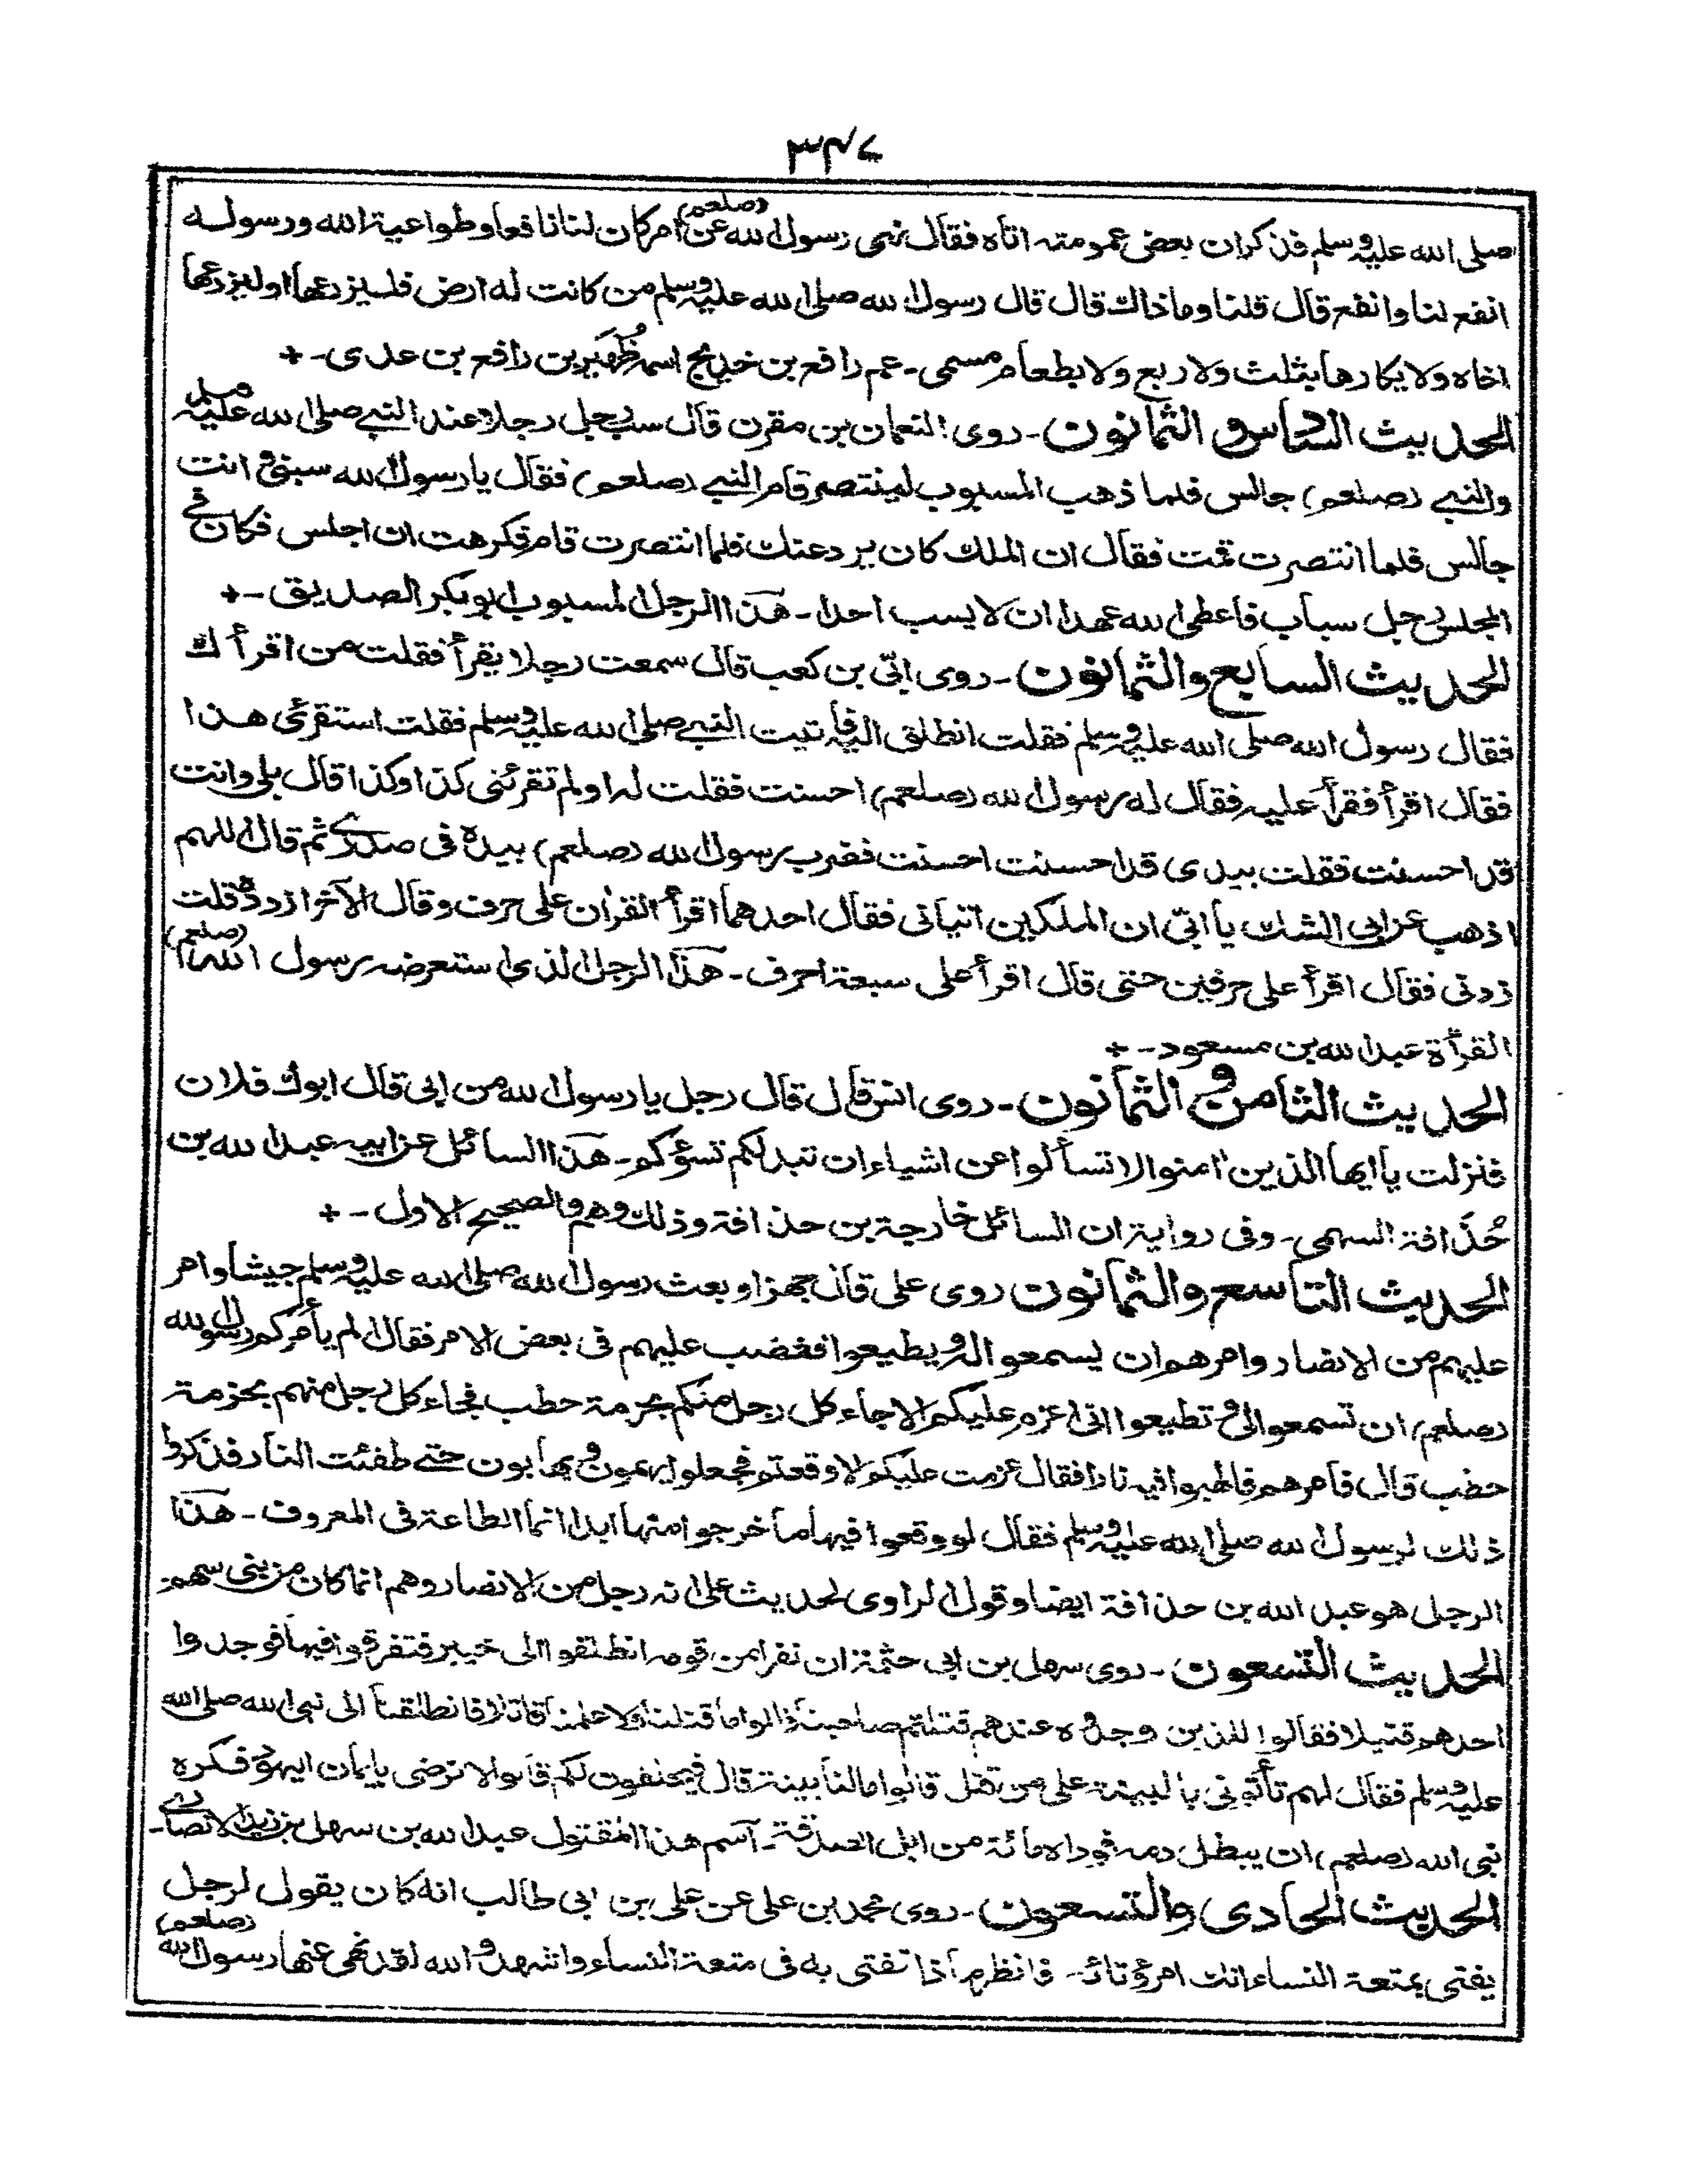 ۳۴۷
صلى الله عليه وسلم فذكر ان بعض عمومته اتاه فقال نهى رسول الله (صلعم) عن امر كان لنا نافعا وطواعية الله ورسوله
انفع لنا وانفع قال قلنا وما ذاك قال قال رسول الله صلى الله عليه وسلم من كانت له ارض فليزرعها او ليزرعها
اخاه ولا يكارها بثلث ولا ربع ولا بطعام مسمى - عم رافع بن خديج اسمه ظُهَير بن رافع بن عدى - +
الحديث السادس و الثمانون - روى النعمان بن مقرن قال سب رجل رجلا عند النبي صلى الله عليه وسلم
والنبي (صلعم) جالس فلما ذهب المسبوب لينتصر قام النبي (صلعم) فقال يا رسول الله سبنى و انت
جالس فلما انتصرت قمت فقال ان الملك كان يرد عنك فلما انتصرت قام فكرهت ان اجلس فكان في
المجلس رجل سباب فاعطى الله عهدا ان لا يسب احدا - هذا الرجل المسبوب ابو بكر الصديق - +
الحديث السابع والثمانون - روى ابىّ بن كعب قال سمعت رجلا يقرأ فقلت من اقرأك
فقال رسول الله صلى الله عليه وسلم فقلت انطلق اليه فأتيت النبي صلى الله عليه وسلم فقلت استقرئ هذا
فقال اقرأ فقرأ عليه فقال له رسول الله (صلعم) احسنت فقلت له اولم تقرئنى كذا وكذا قال بلى وانت
قد احسنت فقلت بيدى قد احسنت احسنت فضرب رسول الله (صلعم) بيده فى صدرى ثم قال اللهم
اذهب عن ابى الشك يا ابىّ ان الملكين اتيانى فقال احدهما اقرأ القران على حرف وقال الآخر زده قلت
زدنى فقال اقرأ على حرفين حتى قال اقرأ على سبعة احرف - هذا الرجل الذى استعرضه رسول الله (صلعم)
القرأة عبد الله بن مسعود - +
الحديث الثامن و الثمانون - روى انس قال قال رجل يا رسول الله من ابى قال ابوك فلان
فنزلت يا ايها الذين امنوا لا تسألوا عن اشياء ان تبد لكم تسؤكم - هذا السائل عن ابيه عبد الله بن
حُذافة السهمى - وفى رواية ان السائل خارجة بن حذافة وذلك وهم والصحيح الاول - +
الحديث التاسع والثمانون روى على قال جهز او بعث رسول الله صلى الله عليه وسلم جيشا وامر
عليهم من الانصار وامرهم ان يسمعوا له و يطيعوا فغضب عليهم فى بعض الامر فقال الم يأمركم رسول الله
(صلعم) ان تسمعوا لى و تطيعوا انى اعزم عليكم الا جاء كل رجل منكم بحزمة حطب فجاء كل رجل منهم بحزمة
حضب قال فامرهم فالهبوا فيه نارا فقال عزمت عليكم الا وقعتم فجعلوا يهمون و يهابون حتى طفئت النار فذكروا
ذلك لرسول الله صلى الله عليه وسلم فقال لو وقعوا فيها ما خرجوا منها ابدا انما الطاعة فى المعروف - هذا
الرجل هو عبد الله بن حذافة ايضا وقول الراوى لحديث على انه رجل من الانصار وهم انما كان من بنى سهم -
الحديث التسعون - روى سهل بن ابى حثمة ان نفرا من قومه انطلقوا الى خيبر فتفرقوا فيها فوجدوا
احدهم قتيلا فقالوا للذين وجدوه عندهم قتلتم صاحبنا قالوا ما قتلنا ولا علمنا قاتلا فانطلقنا الى نبى الله صلى الله
عليه وسلم فقال لهم تأتونى بالبينة على من قتل قالوا ما لنا بينة قال فيحلفون لكم قالوا لا نرضى بايمان اليهود فكره
نبى الله (صلعم) ان يبطل دمه فوداه مائة من ابل الصدقة - اسم هذا المقتول عبد الله بن سهل بن زيد الانصارى -
الحديث الحادى والتسعون - روى محمد بن على عن على بن ابى طالب انه كان يقول لرجل
يفتى بمتعة النساء انك امرؤ تائه فانظر ماذا تفتى به فى متعة النساء واشهد و الله لقد نهى عنها رسول الله (صلعم)